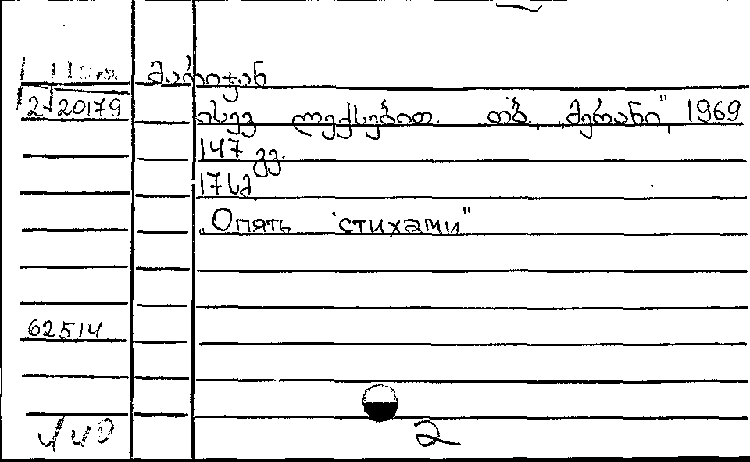 მარიჯან
2 20179 ისევ ლექსებით. თბ. „მერანი", 1969
147 გვ.
17სმ
„Опять стихами"
62514
2